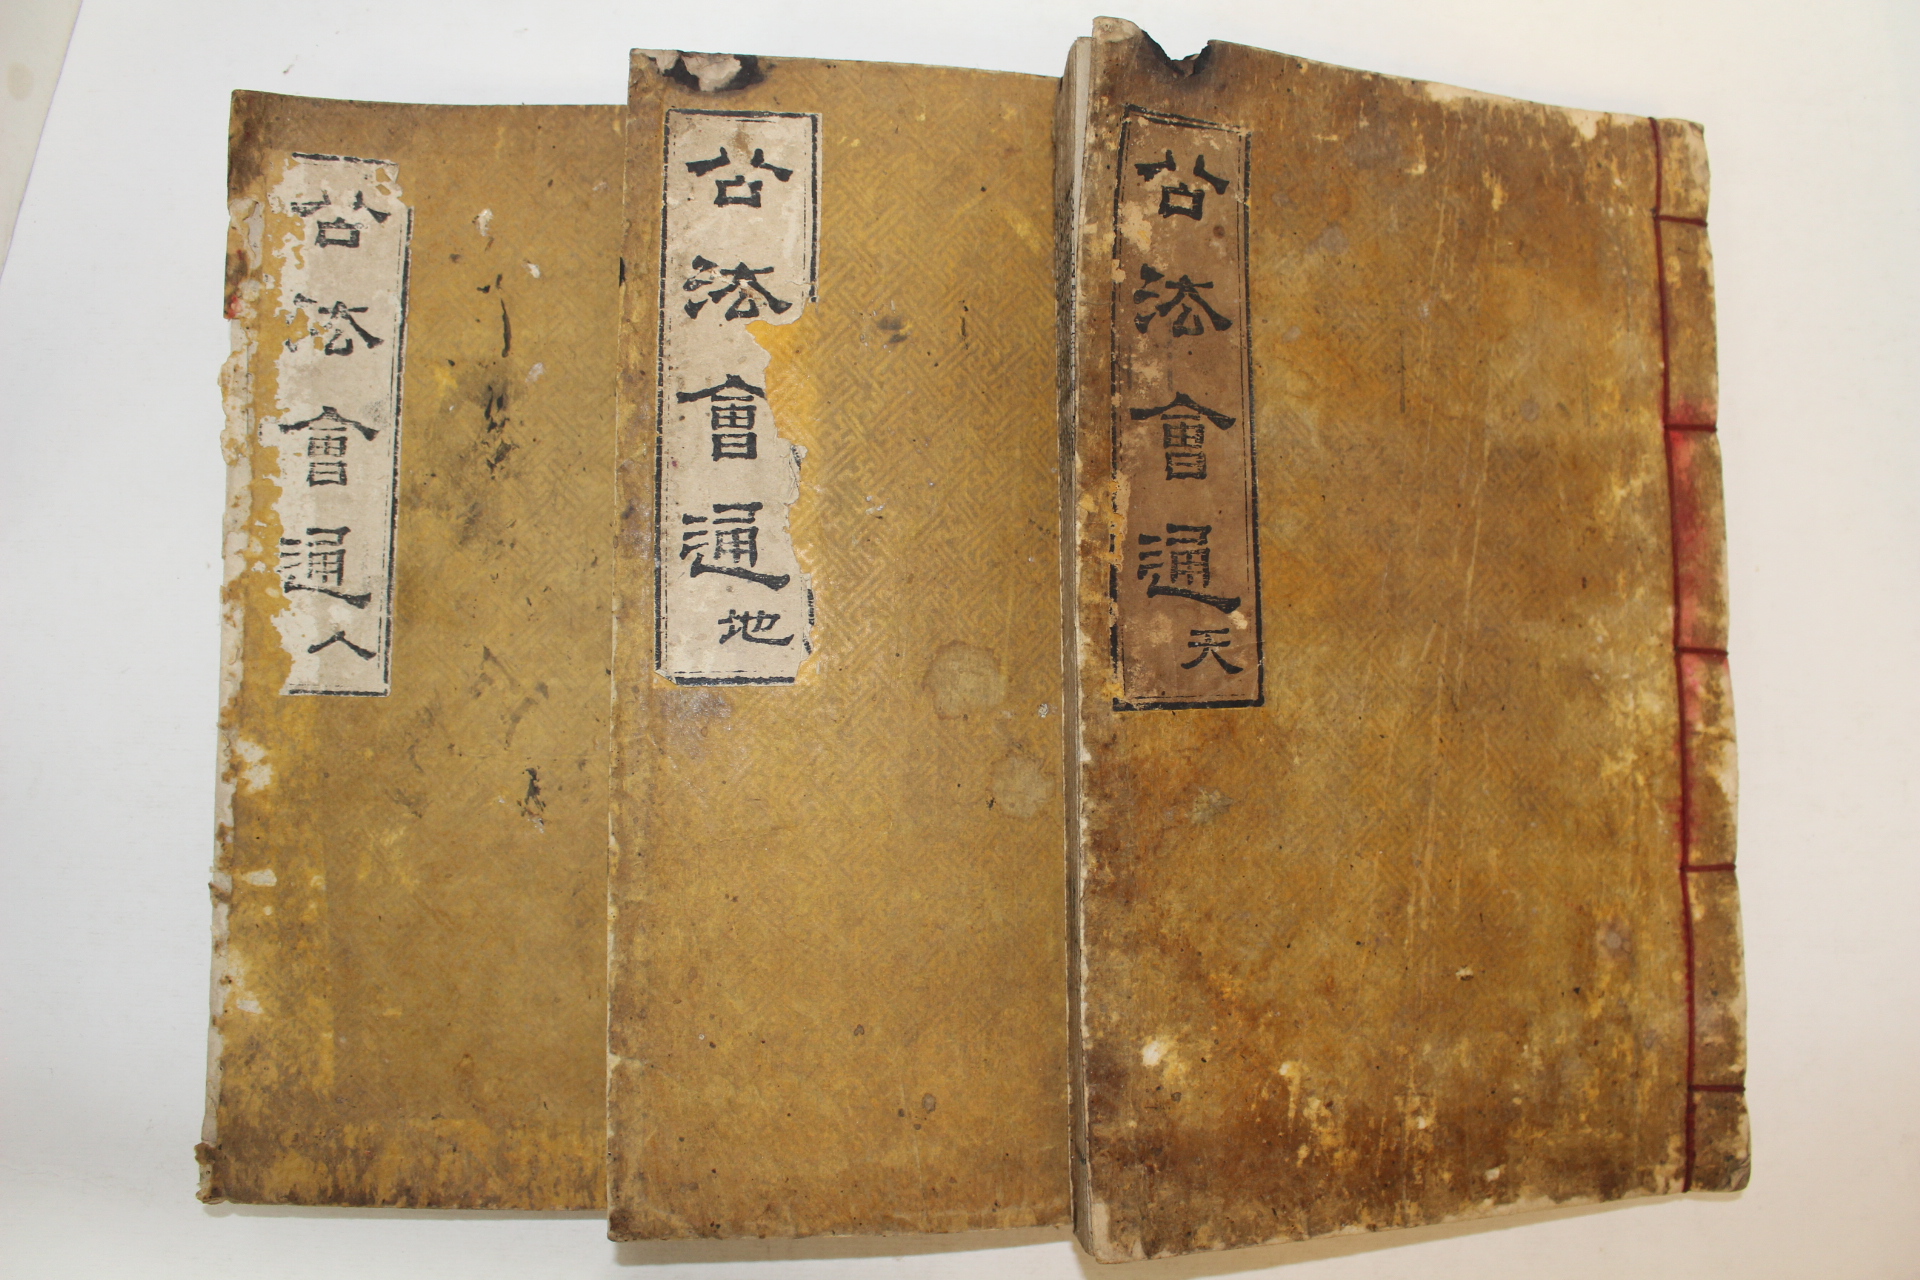 公法會通 天
公法會通 地
公法會通 人